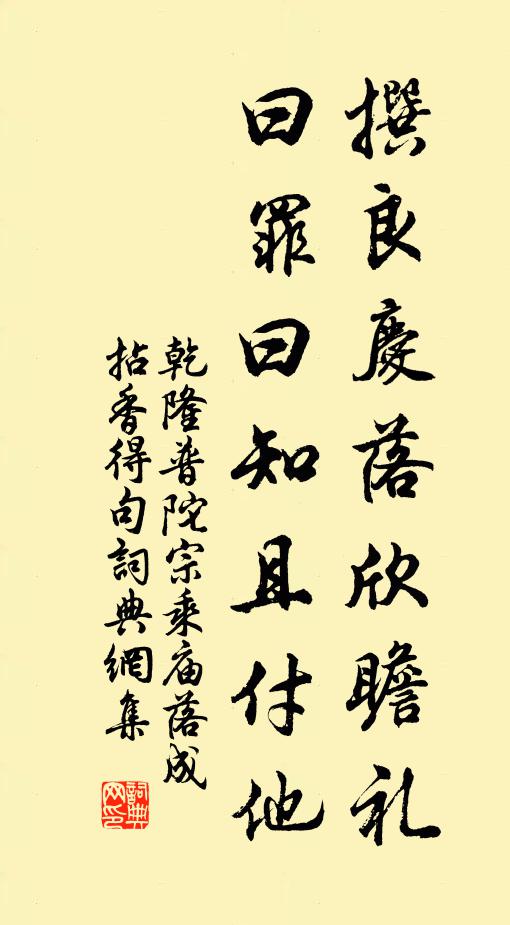 撰良慶落欣瞻礼
曰罪曰知且付他
乾隆普陀宗乘庙落成
拈香得句詞典網集
詞典网印